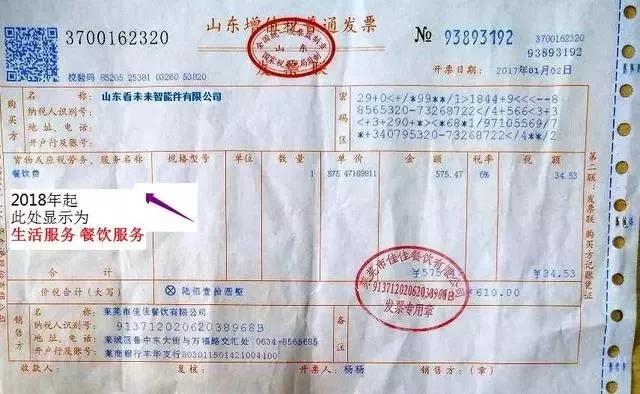 3700162320
山东增值税普通发票
№ 93893192
93893192
校验码 85205 25381 03260 53820
开票日期: 2017年01月02日
全国统一发票监制章
山东
国家税务局监制
购买方
名称: 山东看未来智能件有限公司
纳税人识别号:
地址、电话:
开户行及账号:
密码区
29+0<+/*99**/1>1844+9<<<--8
8565320-73268722/4+566<3+3
<+3+290+*><*68*1/97105569/7
*+340795320-73268722/4**/2
货物或应税劳务、服务名称 规格型号 单位 数量 单价 金额 税率 税额
餐饮费 1 575.47169811 575.47 6% 34.53
2018年起
此处显示为
生活服务 餐饮服务
合计 ¥575 ¥34.53
价税合计(大写) ⊗ 陆佰壹拾圆整 ¥610.00
莱芜市佳佳餐饮有限公司
91371202062038968B
发票专用章
销售方
名称: 莱芜市佳佳餐饮有限公司
纳税人识别号: 91371202062038968B
地址、电话: 莱城区鲁中东大街与万福路交汇处 0634-8565685
开户行及账号: 莱商银行丰华支行803011501421004100
备注
收款人: 复核: 开票人: 杨杨 销售方:(章)
第二联:发票联 购买方记账凭证